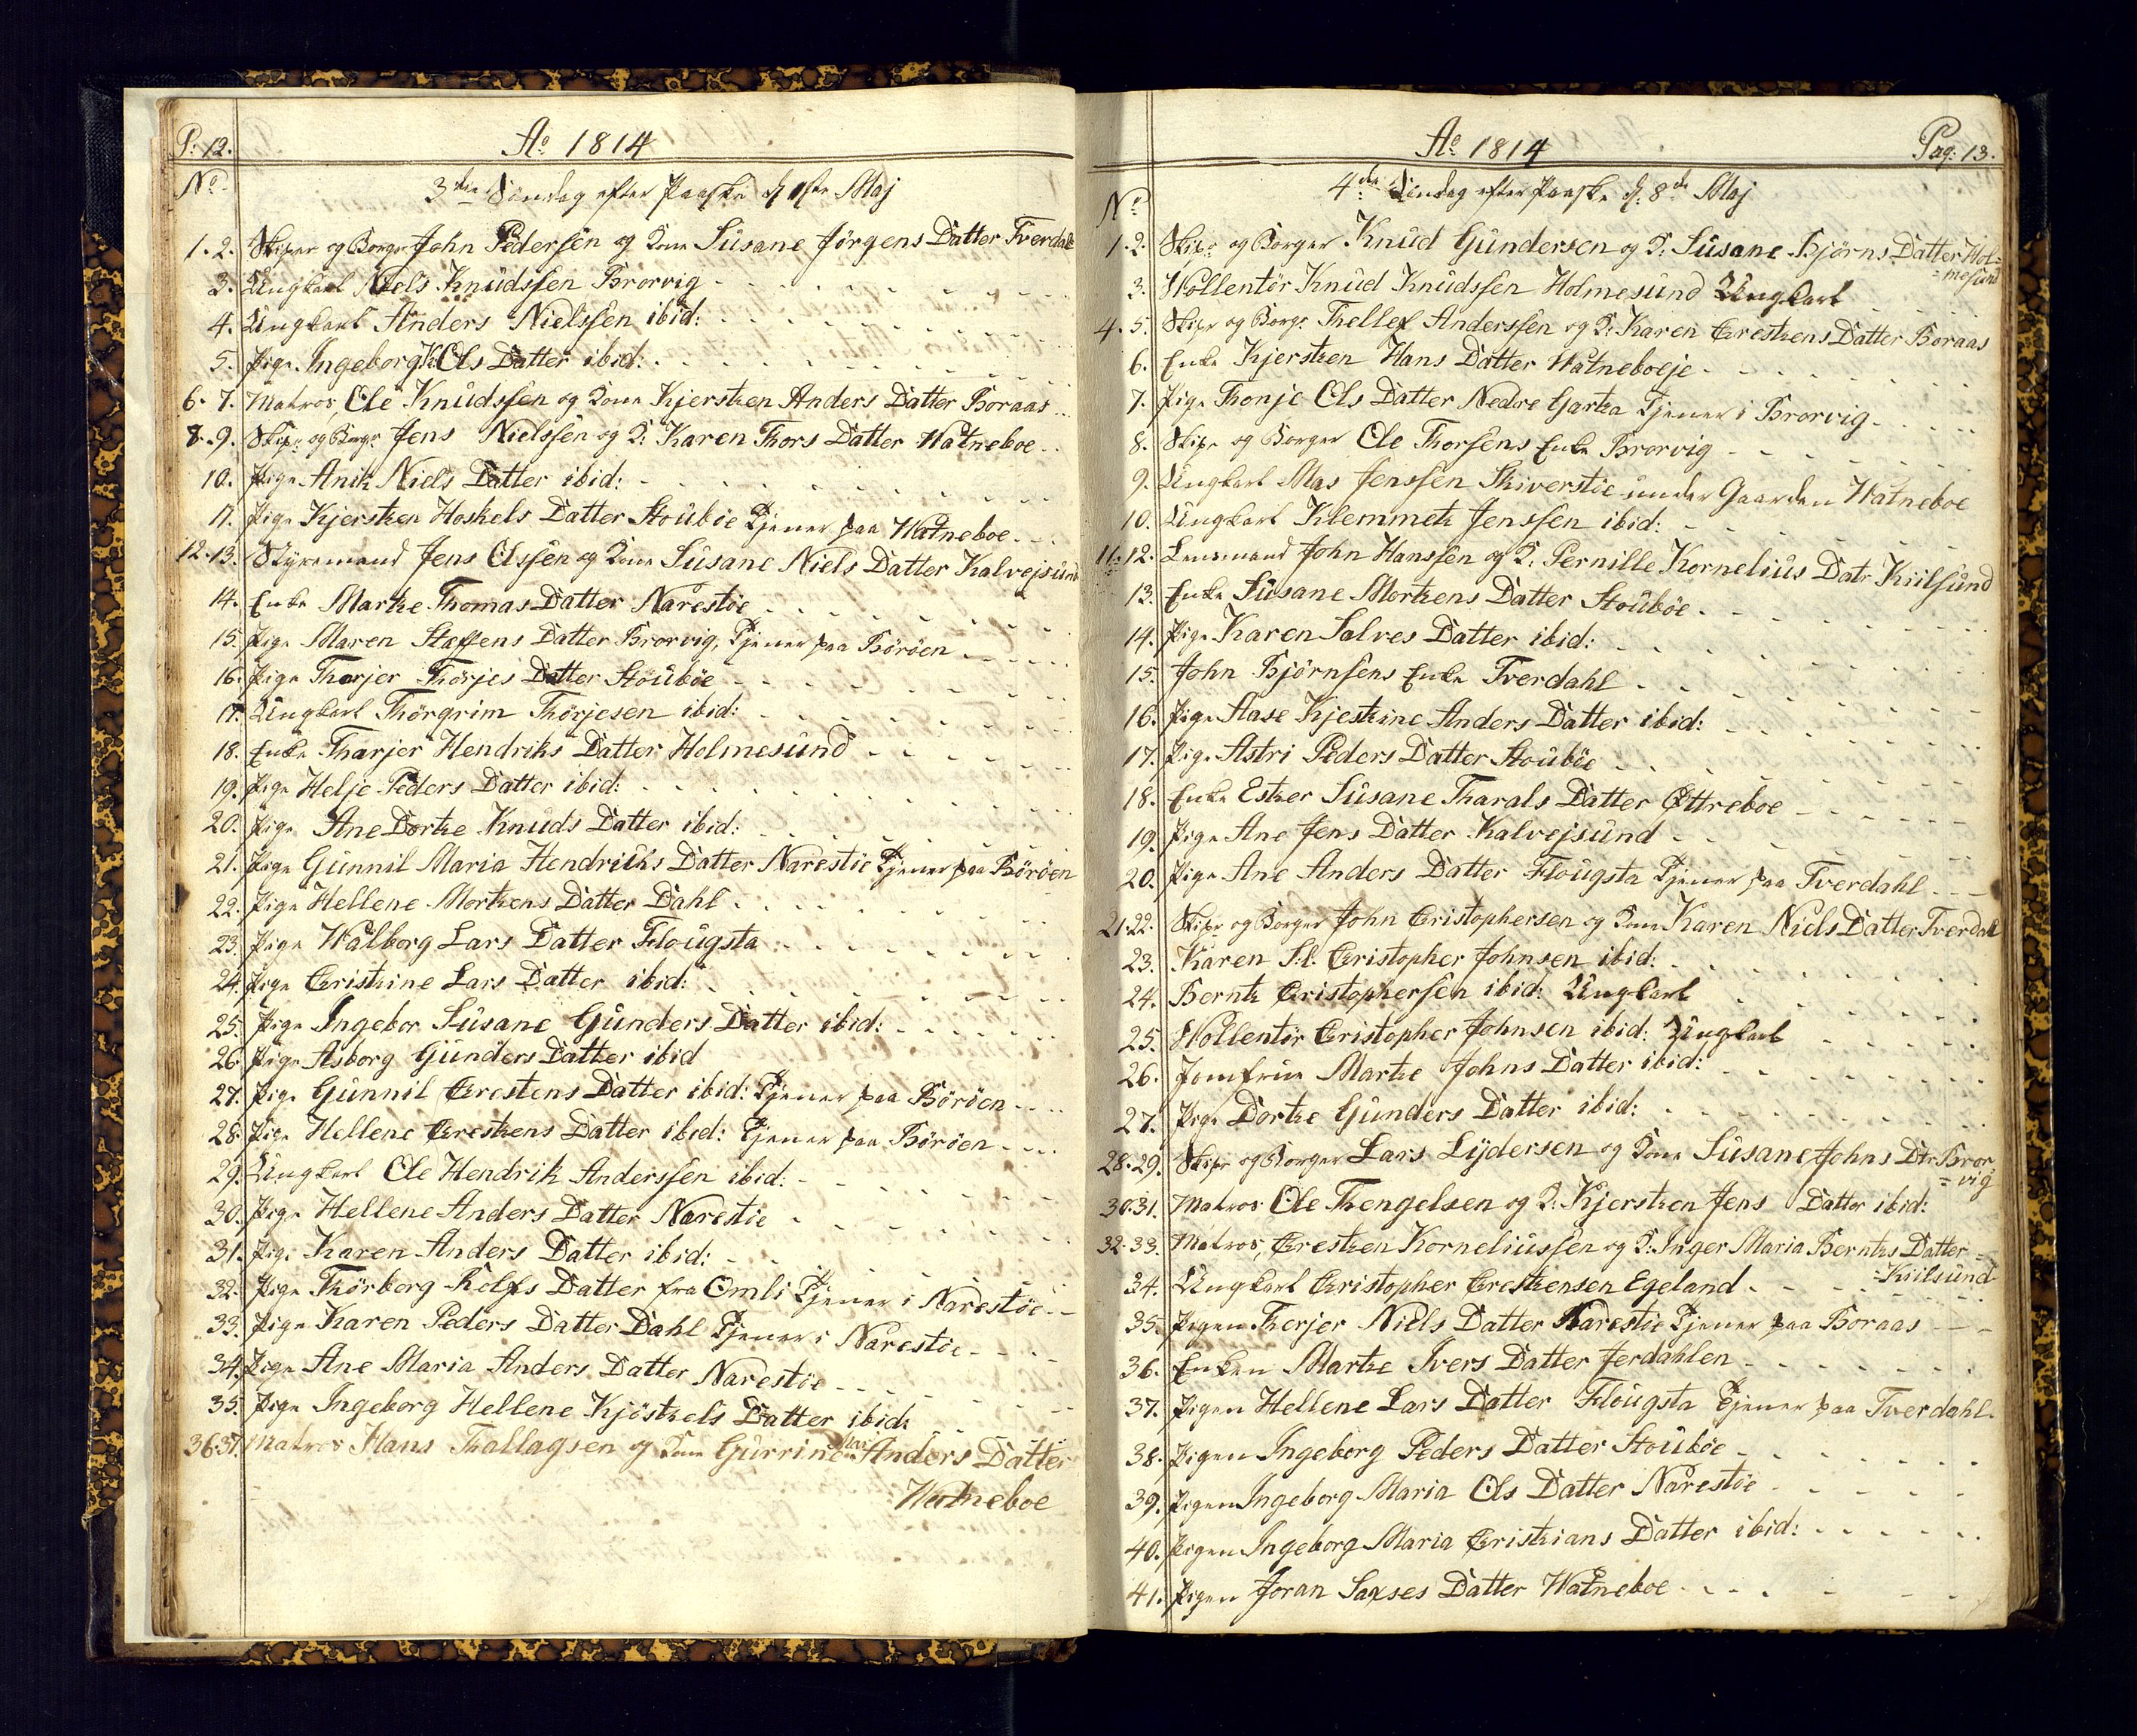 P: 12.
Ao 1814
No
3die Søndag efter Paaske d 1ste Maj
1. 2. Skiper og Borger John Pedersen og Kone Susane Jörgens Datter Tverdahl
3. Ungkarl Niels Knudssen Brorvig
4. Ungkarl Anders Nielssen ibid:
5. Pige Ingeborg K. Ols Datter ibid:
6. 7. Matros Ole Knudssen og Kone Kjersten Anders Datter Boraas
8. 9. Skipr og Borgr Jens Nielssen og K: Karen Thors Datter Watneboe
10. Pige Anik Niels Datter ibid:
11. Pige Kjersten Hoskels Datter Stouböe Tjener paa Watneboe
12. 13. Styremand Jens Olssen og Kone Susane Niels Datter Kalvejsund
14. Enke Marthe Thomas Datter Narestöe
15. Pige Maren Staffens Datter Brorvig, Tjener paa Böröen
16. Pige Thorjer Thörjes Datter Stouböe
17. Ungkarl Thörgrim Thörjesen ibid:
18. Enke Tharjer Hendriks Datter Holmesund
19. Pige Helje Peders Datter ibid:
20. Pige Ane Dorthe Knuds Datter ibid:
21. Pige Gunnil Maria Hendrichs Datter Narestöe Tjener paa Böröen
22. Pige Hellene Mortens Datter Dahl
23. Pige Walborg Lars Datter Flougsta
24. Pige Christine Lars Datter ibid:
25. Pige Ingebor Susane Gunders Datter ibid:
26. Pige Asborg Gunders Datter ibid
27. Pige Gunnil Chrestens Datter ibid: Tjener paa Böröen
28. Pige Hellene Chrestens Datter ibid: Tjener paa Böröen
29. Ungkarl Ole Hendrik Anderssen ibid:
30. Pige Hellene Anders Datter Narestöe
31. Pige Karen Anders Datter ibid:
32. Pige Thörborg Rolfs Datter fra Omli Tjener i Narestöe
33. Pige Karen Peders Datter Dahl Tjener i Narestöe
34. Pige Ane Maria Anders Datter Narestöe
35. Pige Ingeborg Hellene Kjöstels Datter ibid:
36 37. Matros Hans Thallagsen og Kone Gurrine Anders Datter
Watneboe
Ao 1814
Pag: 13.
No
4de Søndag efter Paaske d. 8de Maj
1. 2. Skipr og Borger Knud Gundersen og K: Susane Björns Datter Hol=
=mesund
3. Wollentör Knud Knudssen Holmesund Ungkarl
4. 5. Skipr og Borgr Thellef Anderssen og K: Karen Chrestens Datter Boraas
6. Enke Kjersten Hans Datter Watneboeje
7. Pige Thonje Ols Datter Nedre Garta Tjener i Brorvig
8. Skipr og Borger Ole Thorsens Enke Brorvig
9. Ungkarl Mas Jenssen Skiverstöe under Gaarden Watneboe
10. Ungkarl Klemmet Jenssen ibid:
11. 12. Lensmand John Hanssen og K: Pernille Kornelius Datr Kiilsund
13. Enke Susane Mortens Datter Stouböe
14. Pige Karen Salves Datter ibid:
15. John Björnsens Enke Tverdahl
16. Pige Aase Kjestine Anders Datter ibid:
17. Pige Astri Peders Datter Stouböe
18. Enke Ester Susane Tharals Datter Øttreboe
19. Pige Ane Jens Datter Kalvejsund
20. Pige Ane Anders Datter Flougsta Tjener paa Tverdahl
21. 22. Skipr og Borger John Christophersen og Kone Karen Niels Datter Tverdahl
23. Karen Sl. Christopher Johnsen ibid:
24. Bernt Christophersen ibid: Ungkarl
25. Wollentör Christopher Johnsen ibid: Ungkarl
26. Jomfrue Marthe Johns Datter ibid:
27. Pige Dorthe Gunders Datter ibid:
28. 29. Skipr og Borger Lars Lydersen og Kone Susane Johns Dtr Bror
=vig
30. 31. Matros Ole Thengelsen og K: Kjersten Jens Datter ibid:
32. 33. Matros Chresten Korneliussen og K: Inger Maria Bernts Datter =
=Kiilsund
34. Ungkarl Christopher Chrestensen Egeland
35. Pigen Therjer Niels Datter Narestöe Tjener paa Boraas
36. Enken Marthe Ivers Datter Jerdahlen
37. Pigen Hellene Lars Datter Flougsta Tjener paa Tverdahl.
38. Pigen Ingeborg Peders Datter Stouböe
39. Pigen Ingeborg Maria Ols Datter Narestöe
40. Pigen Ingeborg Maria Christians Datter ibid:
41. Pigen Joran Saxses Datter Watneboe